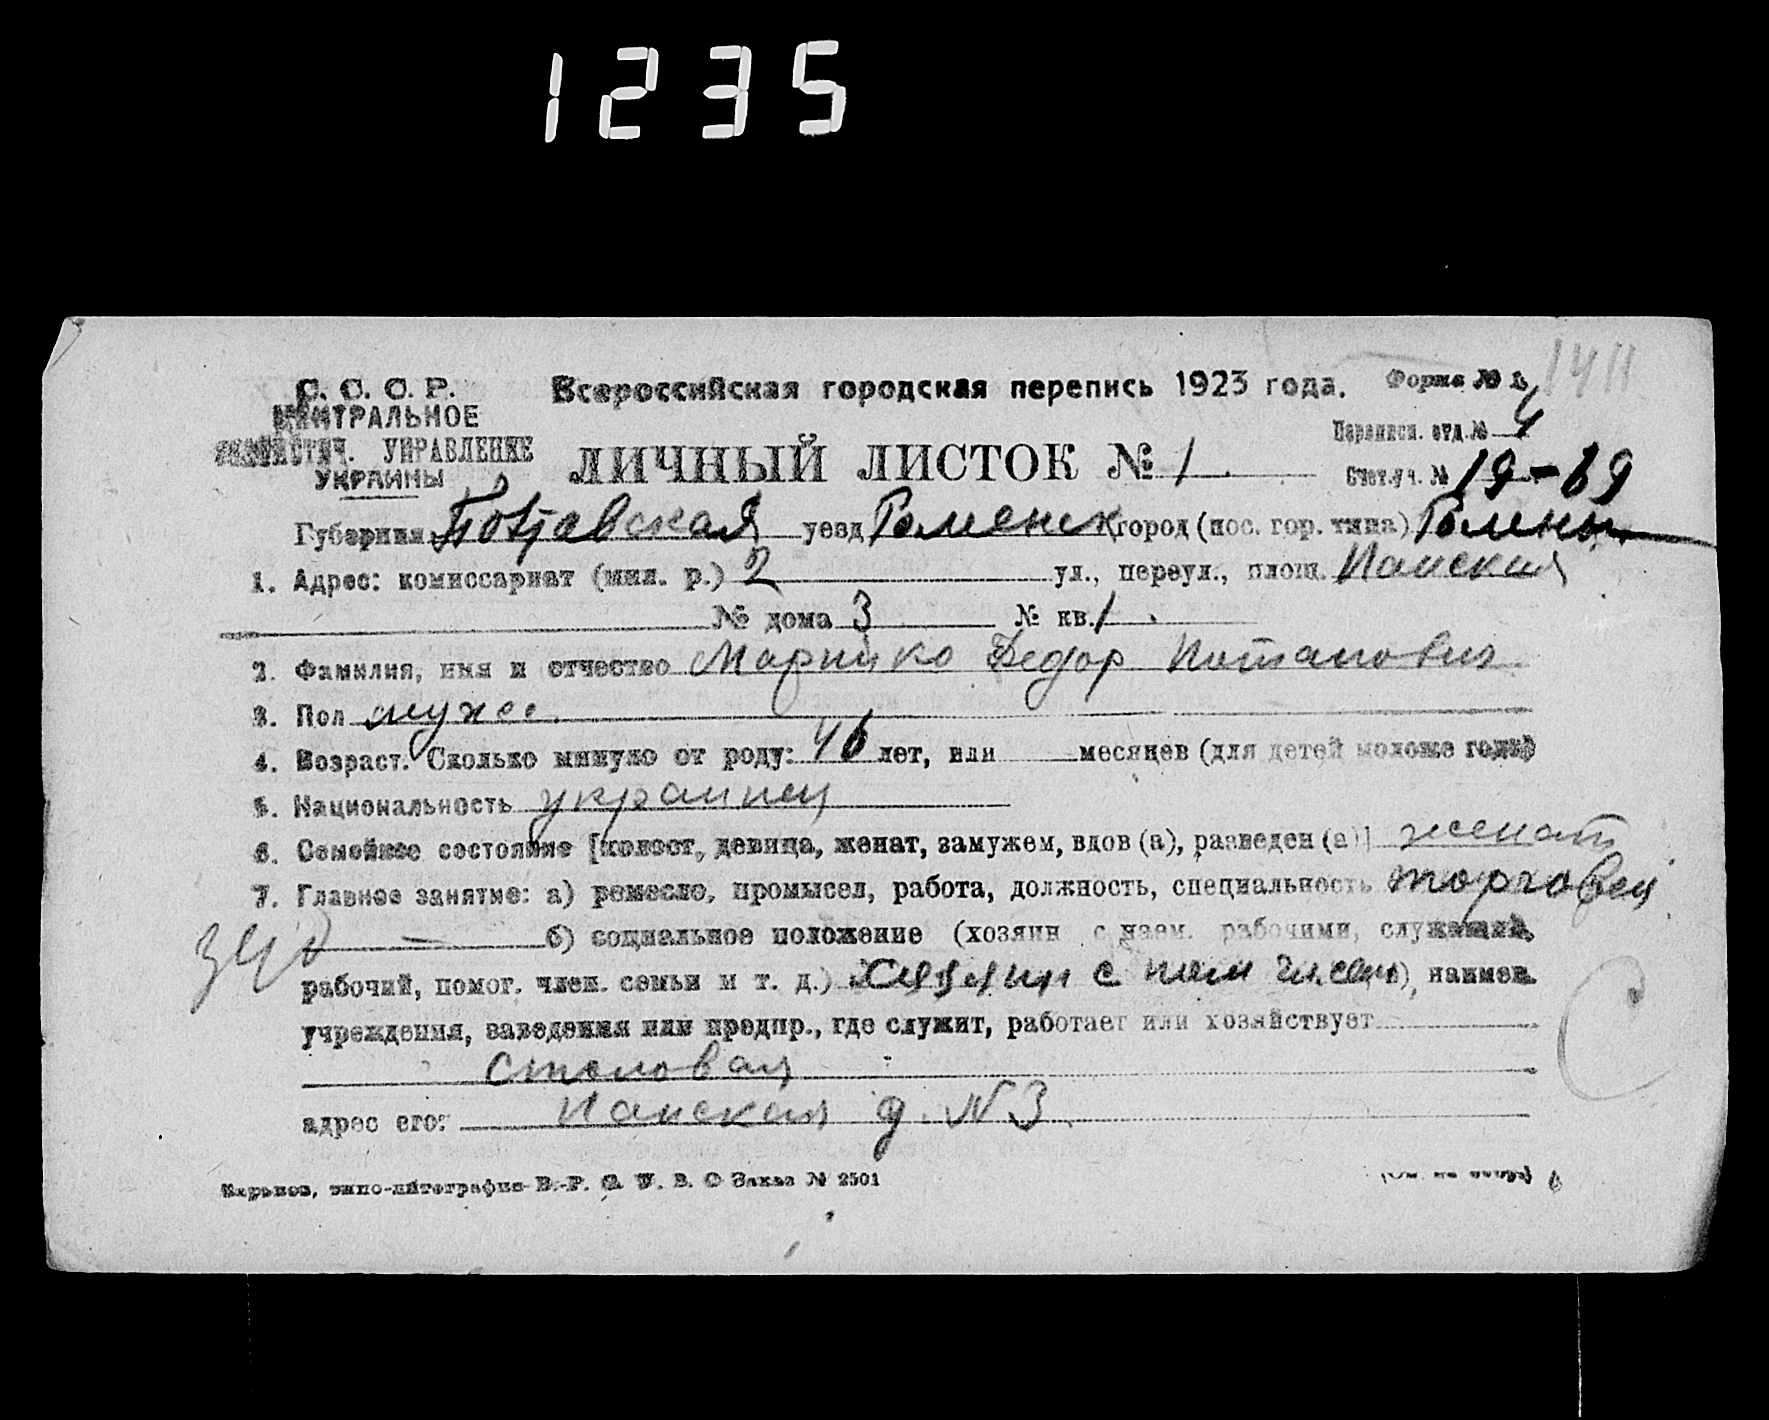 1235
1411
С. С. С. Р.
ЦЕНТРАЛЬНОЕ
СТАТИСТИЧ. УПРАВЛЕНИЕ
УКРАИНЫ
Всероссийская городская перепись 1923 года.
Форма № 1.
ЛИЧНЫЙ ЛИСТОК № 1
Переписн. отд. № 4
Счет. уч. № 19-69
Губерния Полтавская уезд Роменск город (пос. гор. типа) Ромны
1. Адрес: комиссариат (мил. р.) 2 ул., переул., площ.
№ дома 3 № кв. 1
2. Фамилия, имя и отчество Федор Потапович
3. Пол мужс.
4. Возраст. Сколько минуло от роду: 46 лет, или месяцев (для детей моложе года)
5. Национальность украинец
6. Семейное состояние [холост, девица, женат, замужем, вдов (а), разведен (а)] женат
7. Главное занятие: а) ремесло, промысел, работа, должность, специальность торговец
б) социальное положение (хозяин с наем. рабочими, служащий,
рабочий, помог. член. семьи и т. д.) хозяин с наимен.
учреждения, заведения или предпр., где служит, работает или хозяйствует
столовая
адрес его: д. № 3
Харьков, типо-литография Заказ № 2501
(См. на обор.)